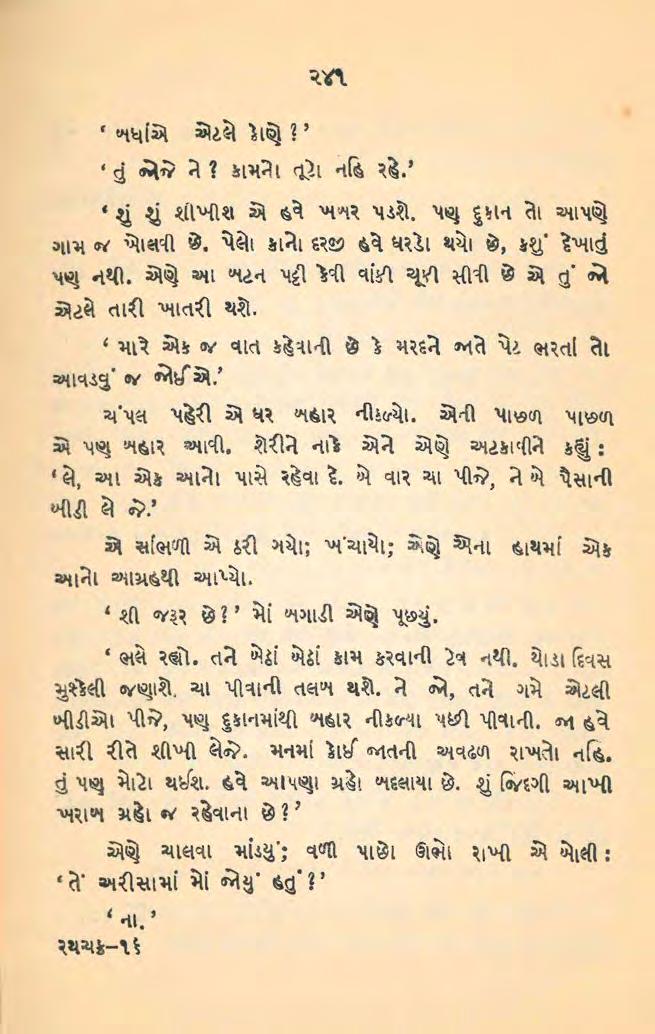 ૨૪૧
‘ બધાંએ એટલે કોણે ? ’
‘ તું જોજે ને ? કામનો તૂટો નહિ રહે.’
‘ શું શું શીખીશ એ હવે ખબર પડશે. પણ દુકાન તો આપણે
ગામ જ ખોલવી છે. પેલો કાનો દરજી હવે ઘરડો થયો છે, કશું દેખાતું
પણ નથી. એણે આ બટન પટ્ટી કેવી વાંકી ચૂકી સીવી છે એ તું જો
એટલે તારી ખાતરી થશે.
‘ મારે એક જ વાત કહેવાની છે કે મરદને જાતે પેટ ભરતાં તો
આવડવું જ જોઈએ.’
ચંપલ પહેરી એ ઘર બહાર નીકળ્યો. એની પાછળ પાછળ
એ પણ બહાર આવી. શેરીને નાકે એને એણે અટકાવીને કહ્યું :
‘ લે, આ એક આનો પાસે રહેવા દે. બે વાર ચા પીજે, ને બે પૈસાની
બીડી લે જે.’
એ સાંભળી એ ઠરી ગયો; ખંચાયો; એણે એના હાથમાં એક
આનો આગ્રહથી આપ્યો.
‘ શી જરૂર છે ? ’ મોં બગાડી એણે પૂછ્યું.
‘ ભલે રહ્યો. તને બેઠાં બેઠાં કામ કરવાની ટેવ નથી. થોડા દિવસ
મુશ્કેલી જણાશે. ચા પીવાની તલબ થશે. ને જો, તને ગમે એટલી
બીડીઓ પીજે, પણ દુકાનમાંથી બહાર નીકળ્યા પછી પીવાની. જા હવે
સારી રીતે શીખી લેજે. મનમાં કોઈ જાતની અવઢળ રાખતો નહિ.
તું પણ મોટો થઈશ. હવે આપણા ગ્રહો બદલાયા છે. શું જિંદગી આખી
ખરાબ ગ્રહો જ રહેવાના છે ? ’
એણે ચાલવા માંડયું; વળી પાછો ઊભો રાખી એ બોલી :
‘ તેં અરીસામાં મોં જોયું હતું ? ’
‘ ના. ’
રથચક્ર–૧૬